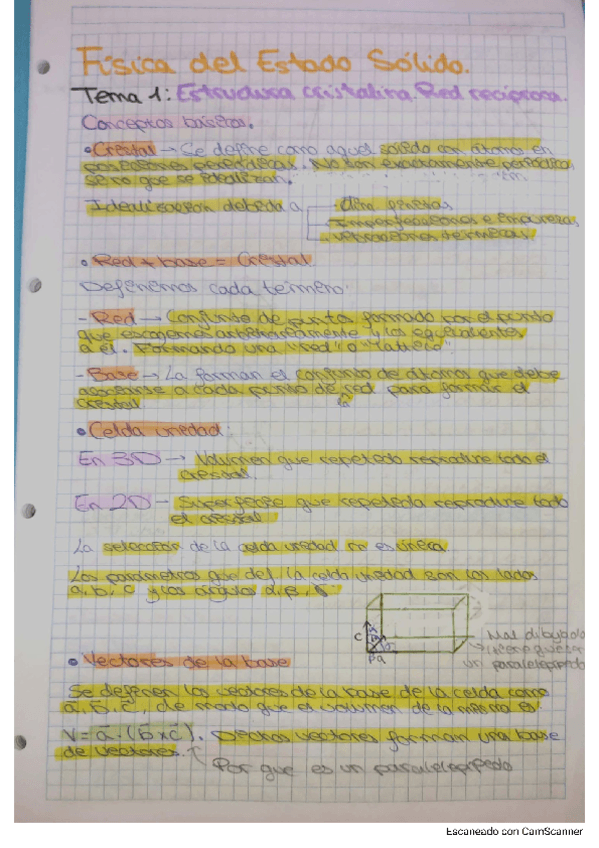 Física del Estado Sólido.
Tema 1: Estructura cristalina. Red recíproca.
Conceptos básicos.
• Cristal → Se define como aquel sólido con átomos en
posiciones periódicas. No son exactamente periódicas
sino que se idealizan.
Idealización debida a
Imperfecciones e impurezas
vibraciones térmicas.
• Red + base = Cristal
Definimos cada término:
- Red → Conjunto de puntos formado por el punto
que escogemos arbitrariamente y los equivalentes
a él. Formando una "red" o "lattice".
- Base → La forman el conjunto de átomos que debe
asociarse a cada punto de red para formar el
cristal
• Celda unidad:
En 3D → Volumen que repetido reproduce todo el
cristal.
En 2D - Superficie que repetida reproduce todo
el cristal
La selección de la celda unidad no es única
Los parámetros que def. la celda unidad son los lados
a, b, c y los ángulos α, β, γ
c
a
Mal dibujado
un paralelepípedo
• Vectores de la base
Se definen los vectores de la base de la celda como
a, b, c, de modo que el volumen de la misma es
V = a · (b x c). Dichos vectores forman una base
de vectores.
Por que es un paralelepípedo
Escaneado con CamScanner